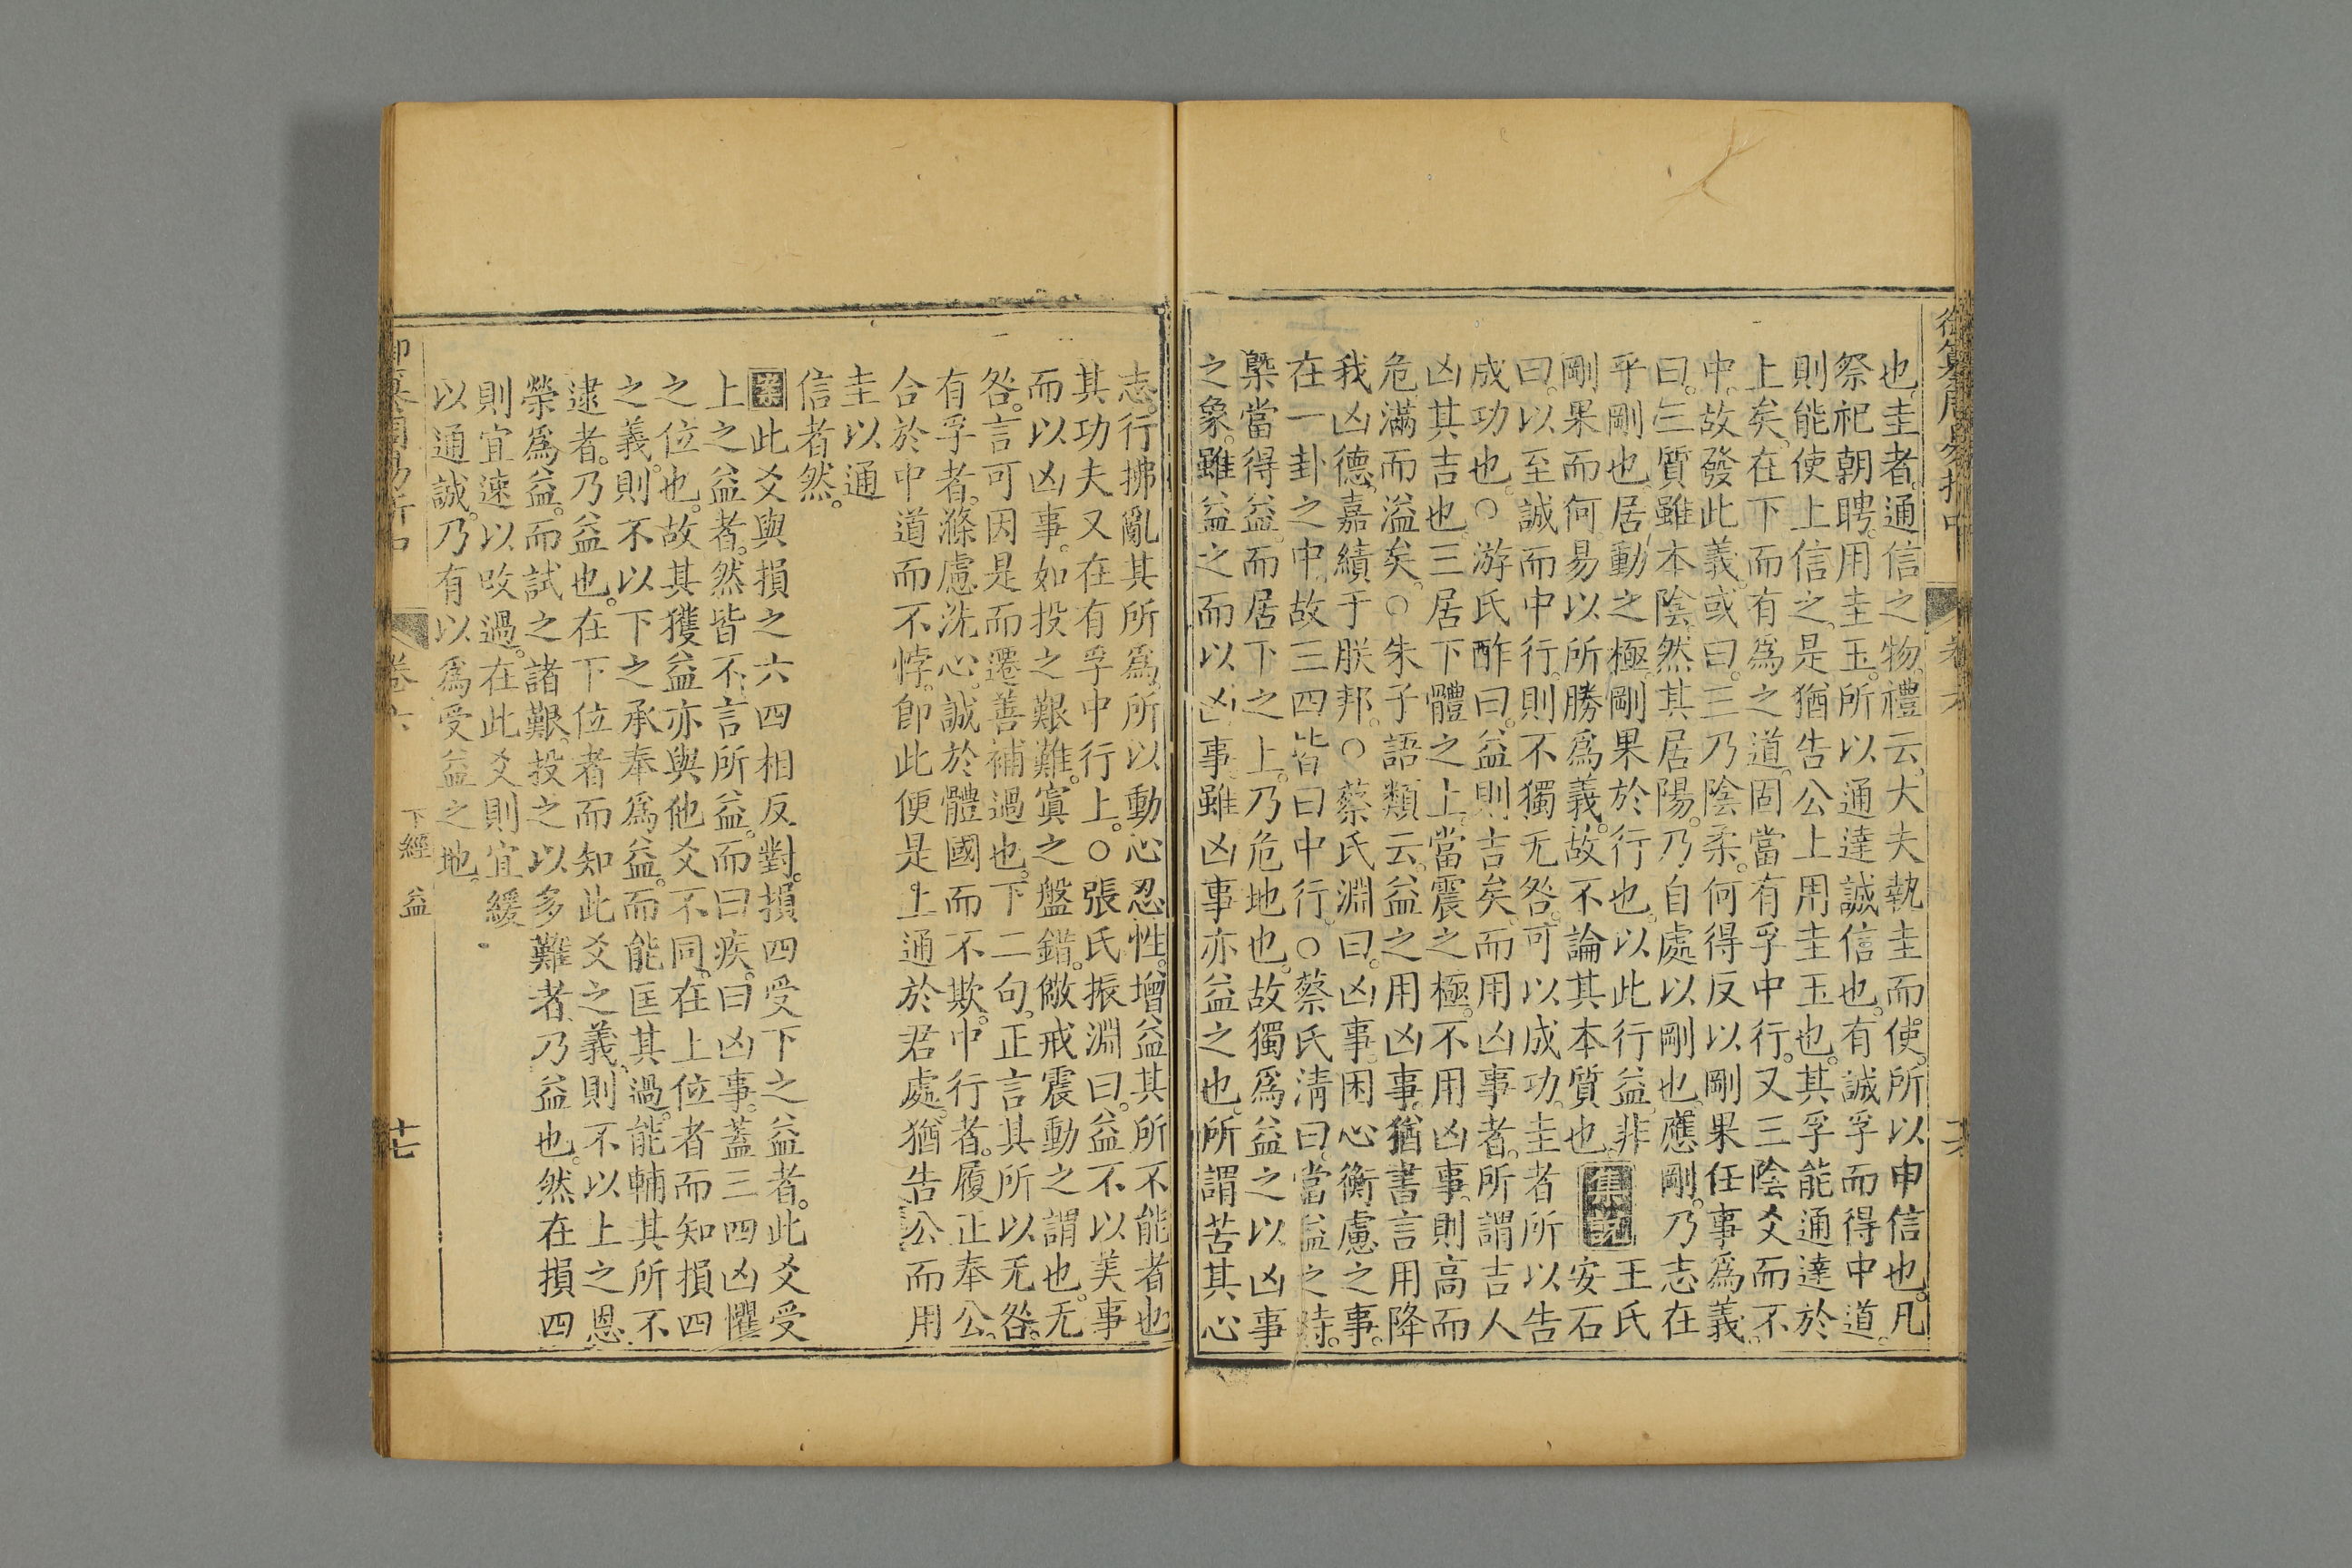 御纂周易折中
卷六
也圭者通信之物禮云大夫執圭而使所以申信也凡
祭祀朝聘用圭玉所以通達誠信也有誠孚而得中道
則能使上信之是猶告公上用圭玉也其孚能通達於
上矣在下而有爲之道固當有孚中行又三陰爻而不
中故發此義或曰三乃陰柔何得反以剛果任事爲義
曰三質雖本陰然其居陽乃自處以剛也應剛乃志在
乎剛也居動之極剛果於行也以此行益非
剛果而何易以所勝爲義故不論其本質也 集說 王氏安石
曰以至誠而中行則不獨无咎可以成功圭者所以告
成功也○游氏酢曰益則吉矣而用凶事者所謂吉人
凶其吉也三居下體之上當震之極不用凶事則高而
危滿而溢矣○朱子語類云益之用凶事猶書言用降
我凶德嘉績于朕邦○蔡氏淵曰凶事困心衡慮之事
在一卦之中故三四皆曰中行○蔡氏清曰當益之時
槩當得益而居下之上乃危地也故獨爲益之以凶事
之象雖益之而以凶事雖凶事亦益之也所謂苦其心
志行拂亂其所爲所以動心忍性增益其所不能者也
其功夫又在有孚中行上○張氏振淵曰益不以美事
而以凶事如投之艱難寘之盤錯儆戒震動之謂也无
咎言可因是而遷善補過也下二句正言其所以无咎
有孚者滌慮洗心誠於體國而不欺中行者履正奉公
合於中道而不悖卽此便是上通於君處猶告公而用
圭以通
信者然
案此爻與損之六四相反對損四受下之益者此爻受
上之益者然皆不言所益而曰疾曰凶事蓋三四凶懼
之位也故其獲益亦與他爻不同在上位者而知損四
之義則不以下之承奉爲益而能匡其過能輔其所不
逮者乃益也在下位者而知此爻之義則不以上之恩
榮爲益而試之諸艱投之以多難者乃益也然在損四
則宜速以攺過在此爻則宜緩
以通誠乃有以爲受益之地
卷六
下經 益
十七